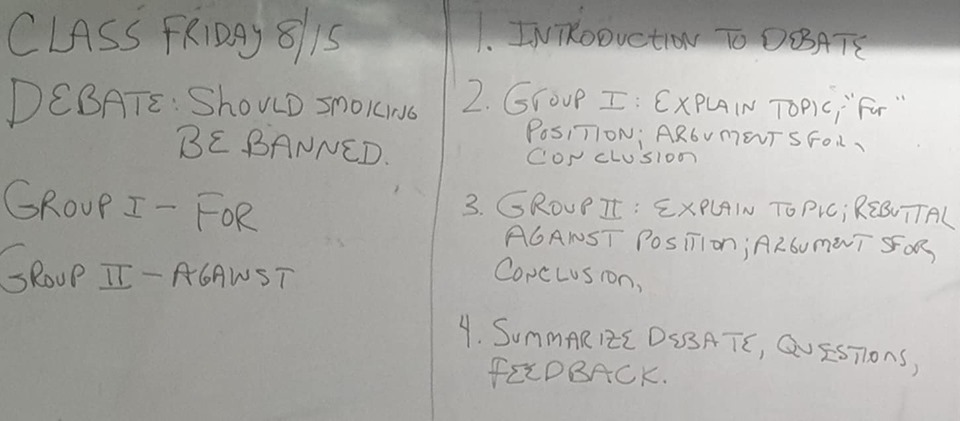 CLASS FRIDAY 8/15
DEBATE: SHOULD SMOKING
BE BANNED.
GROUP I - FOR
GROUP II - AGAINST
1. INTRODUCTION TO DEBATE
2. GROUP I: EXPLAIN TOPIC; "FOR"
POSITION; ARGUMENTS FOR,
CONCLUSION
3. GROUP II: EXPLAIN TOPIC; REBUTTAL
AGAINST POSITION; ARGUMENTS FOR,
CONCLUSION,
4. SUMMARIZE DEBATE, QUESTIONS,
FEEDBACK.